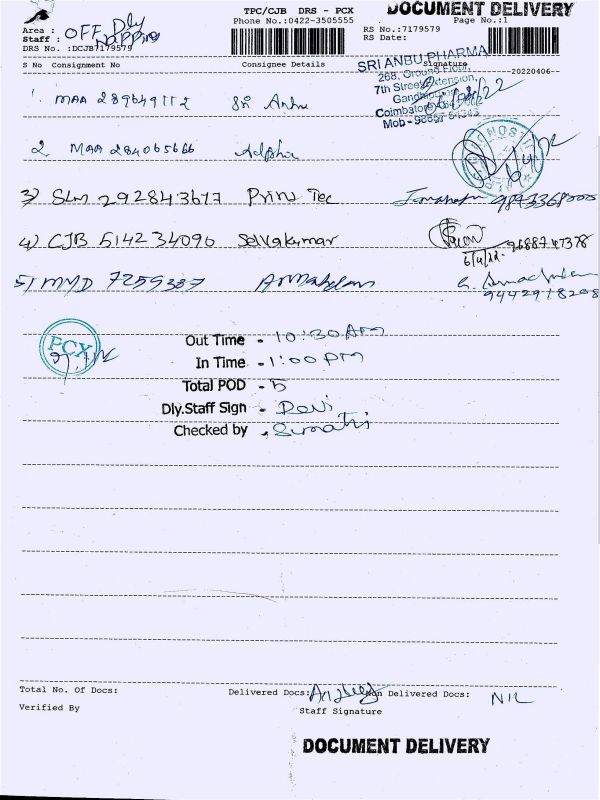 DOCUMENT DELIVERY
TPC/CJB DRS - PCX
Phone No.:0422-3505555
Page No.:1
Area : OFF Dly
Staff :
DRS No. :DCJB7179579
RS No.:7179579
RS Date:
S No Consignment No Consignee Details Signature
20220406
SRI ANBU PHARMA
268, Ground Floor,
7th Street Extension,
Coimbatore
Mob - 98657 54343
1. MAA 289649112 Sri Anbu
2 MAA 284065666 Alpha
3) SLM 292843677 Prins Tec 9893368000
4) CJB 5142 34090 Selvakumar 96887 47378
6/4/22
5) MMD 7259387 9442918208
PCX
Out Time - 10:30 Am
In Time - 1:00 pm
Total POD - 5
Dly.Staff Sign - Devi
Checked by - Sumathi
Total No. Of Docs: Delivered Docs: Non Delivered Docs: NIL
Verified By Staff Signature
DOCUMENT DELIVERY